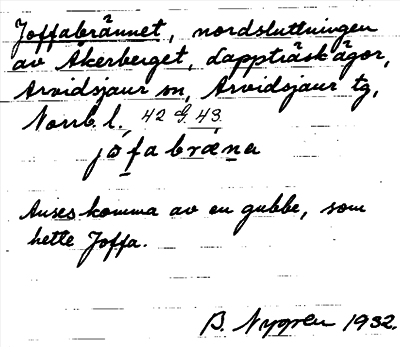 Joffabrännet, nordsluttningen
av Åkerberget, Lappträskågor,
Arvidsjaur sn, Arvidsjaur tg,
Norrb. l. 42 G. 43.
jofabræna
Anses komma av en gubbe, som
hette Joffa.
B. Nygren 1932.